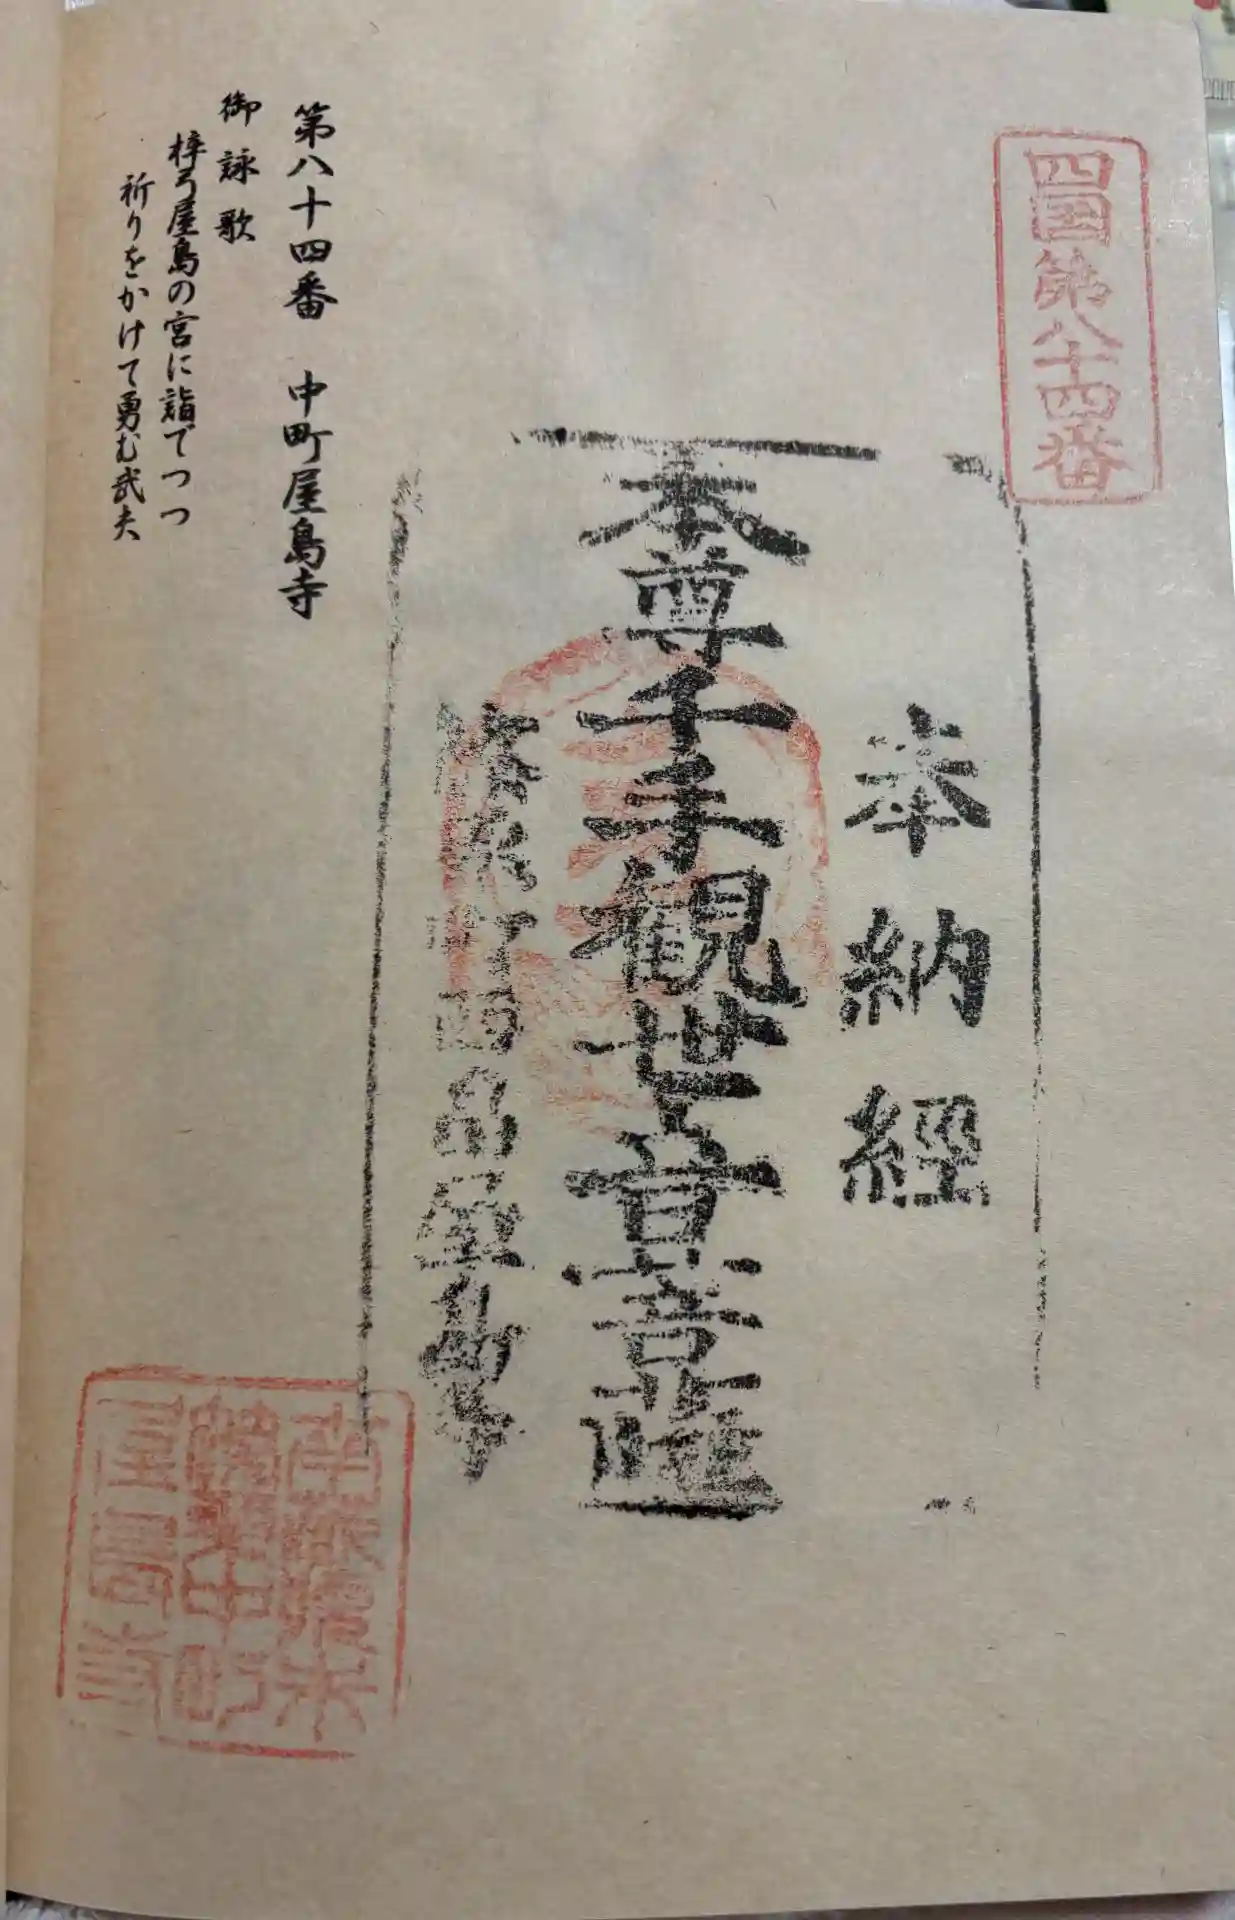 四国第八十四番
奉納経
本尊千手観世音菩薩
屋島寺
第八十四番 中町屋島寺
御詠歌
梓弓屋島の宮に詣でつつ
祈りをかけて勇む武夫
中町
屋島寺